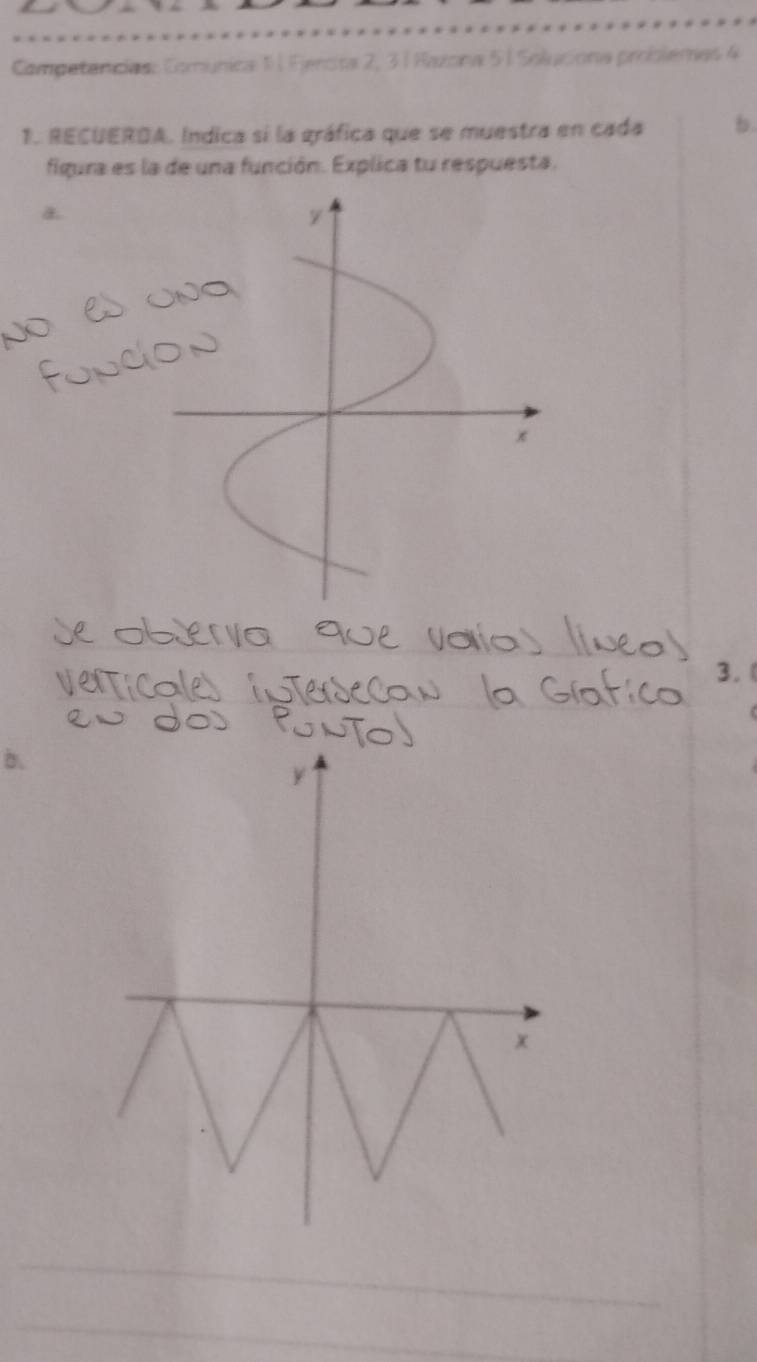 Competencias: Comunica 1 | Ejercita 2, 3 | Razona 5 | Soluciona problemas 4
1. RECUERDA. Indica si la gráfica que se muestra en cada
figura es la de una función. Explica tu respuesta.
b.
a.
y
NO es UNA
FUNCION
x
se observa que varias lineas
verticales intersecan la Grafica
en dos PUNTOS
3.
b.
y
x